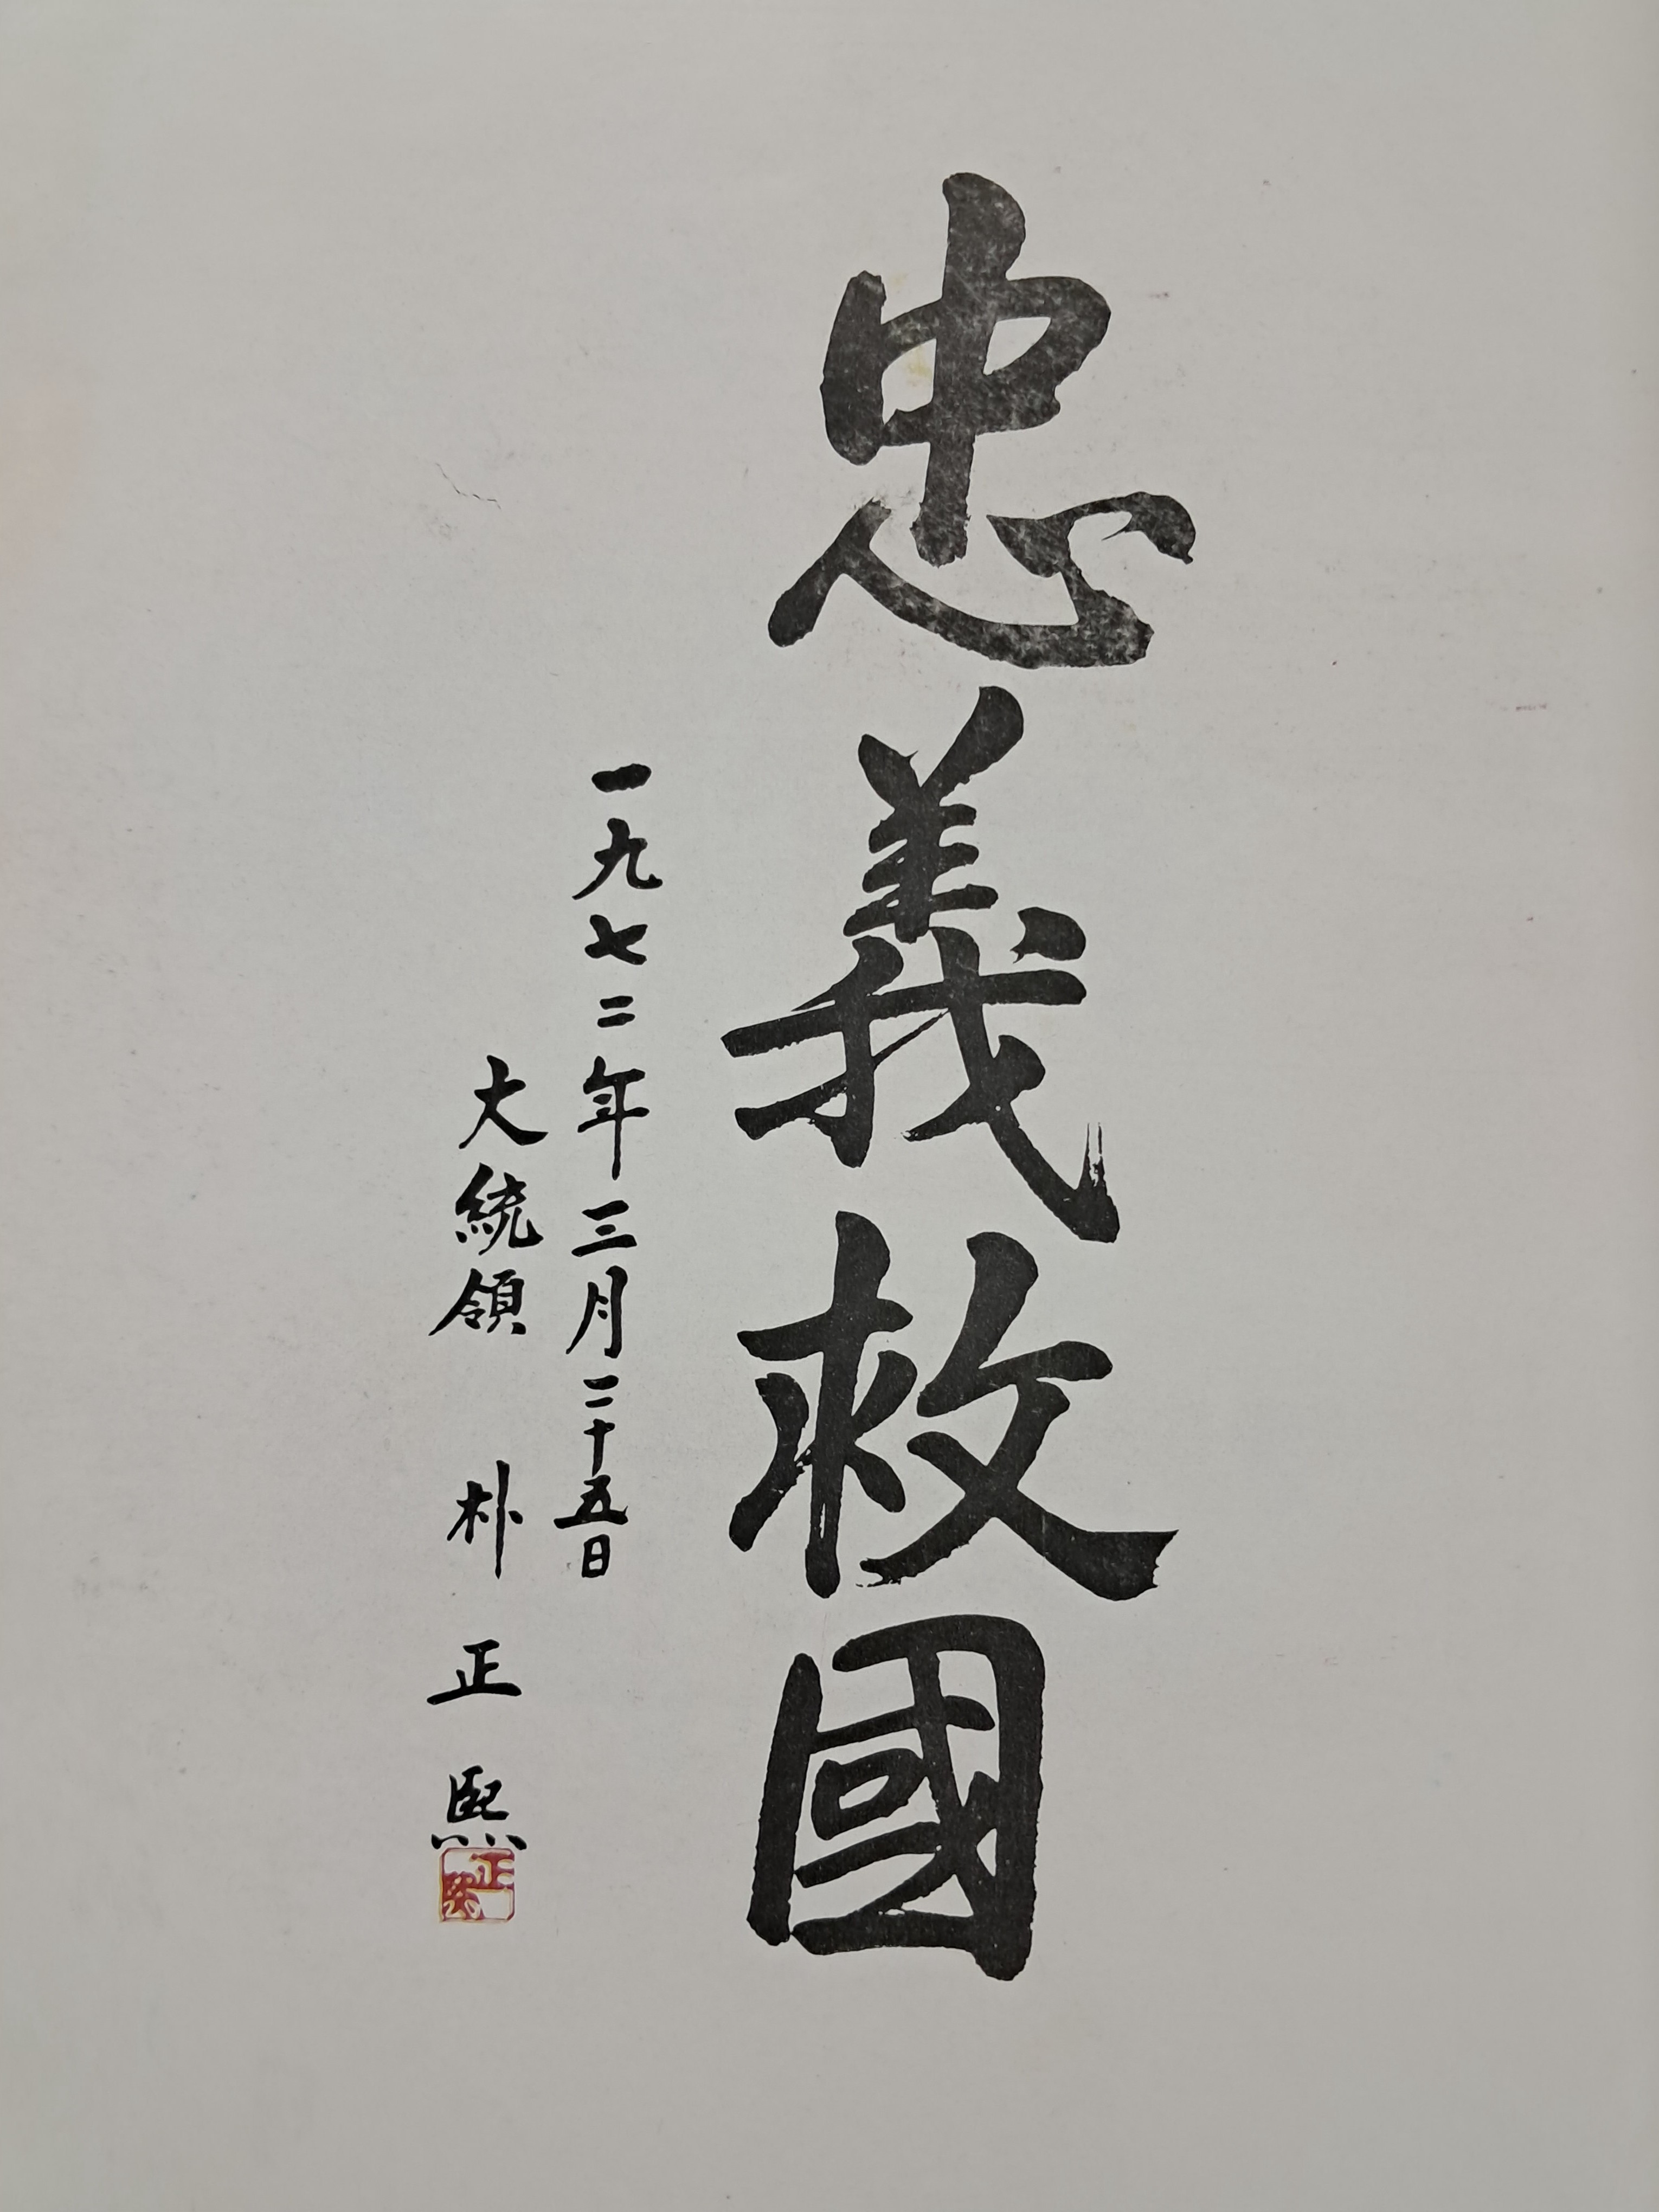 忠義救國
一九七二年三月二十五日
大統領 朴正熙
正熙